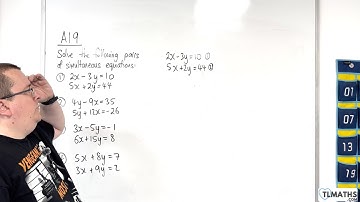 A19
Solve the following pairs
of simultaneous equations:
① 2x-3y=10
5x+2y=44
② 4y-9x=35
5y+12x=-26
3x-5y=-1
6x+15y=8
5x+8y=7
3x+9y=2
2x-3y=10 ①
5x+2y=44 ②
01
05
07
13
19
TLMATHS